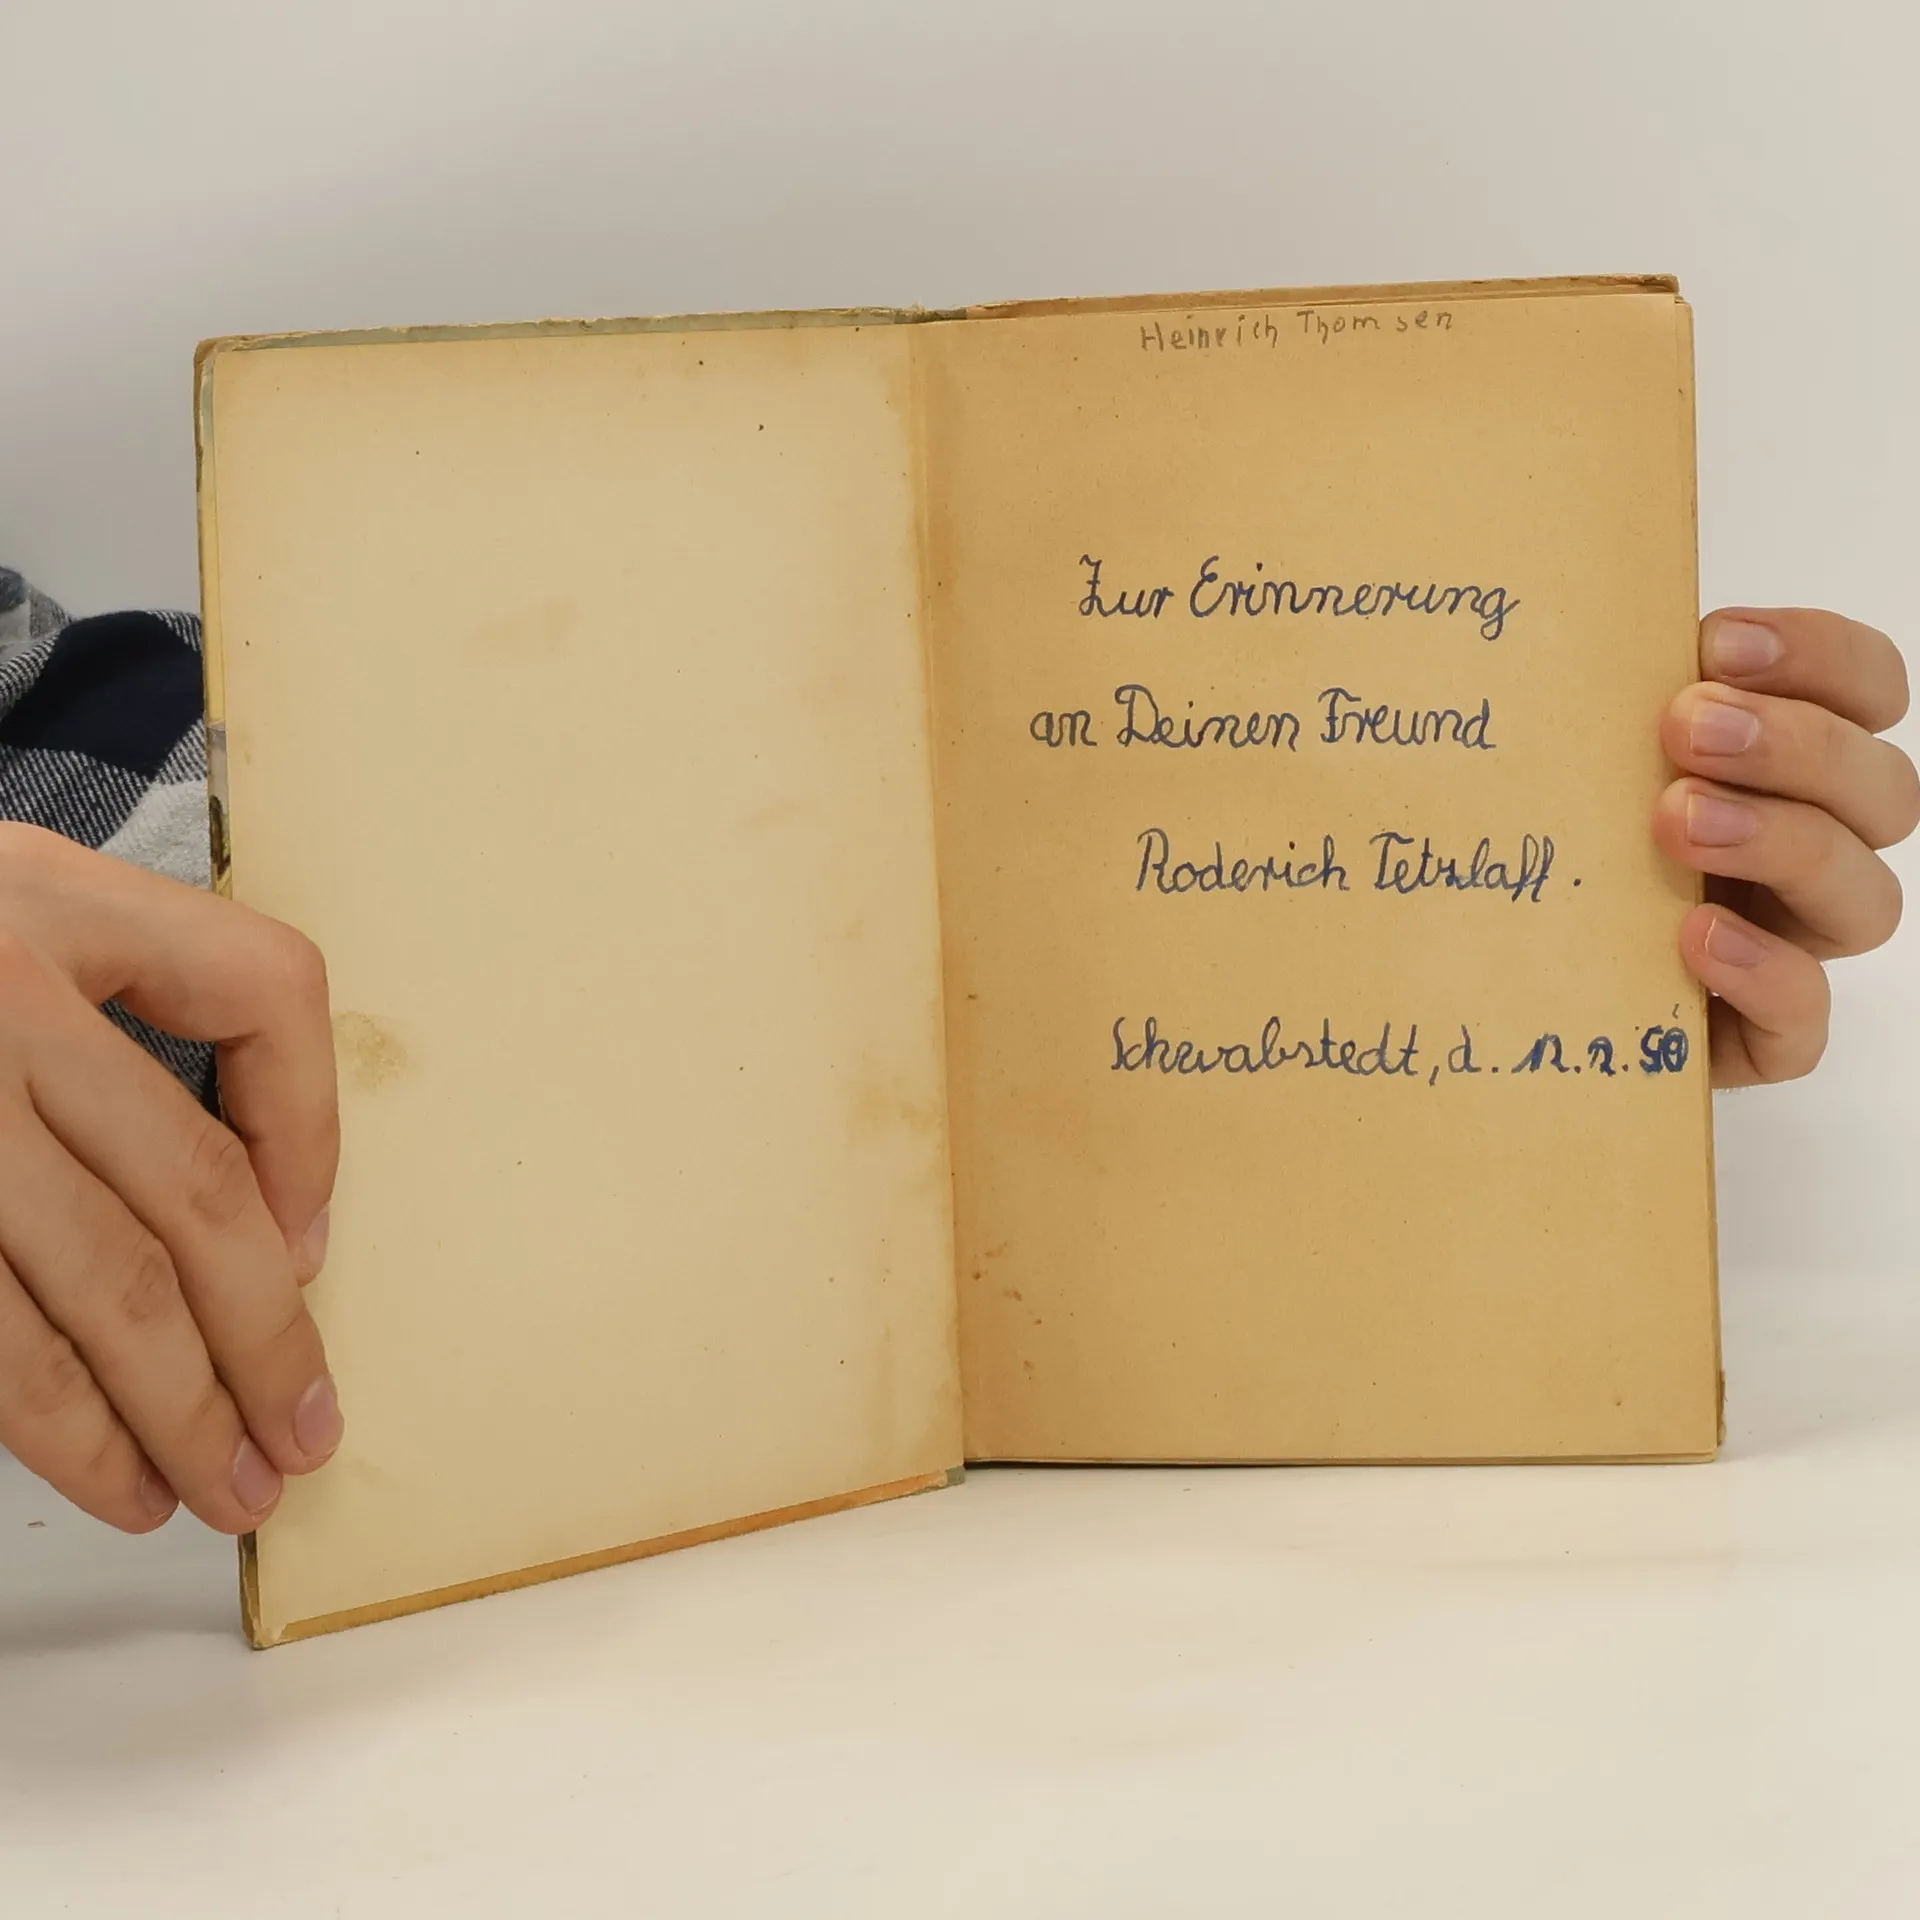 Heinrich Thomsen
Zur Erinnerung
an Deinen Freund
Roderich Tetzlaff.
Schwabstedt, d. 12.2.